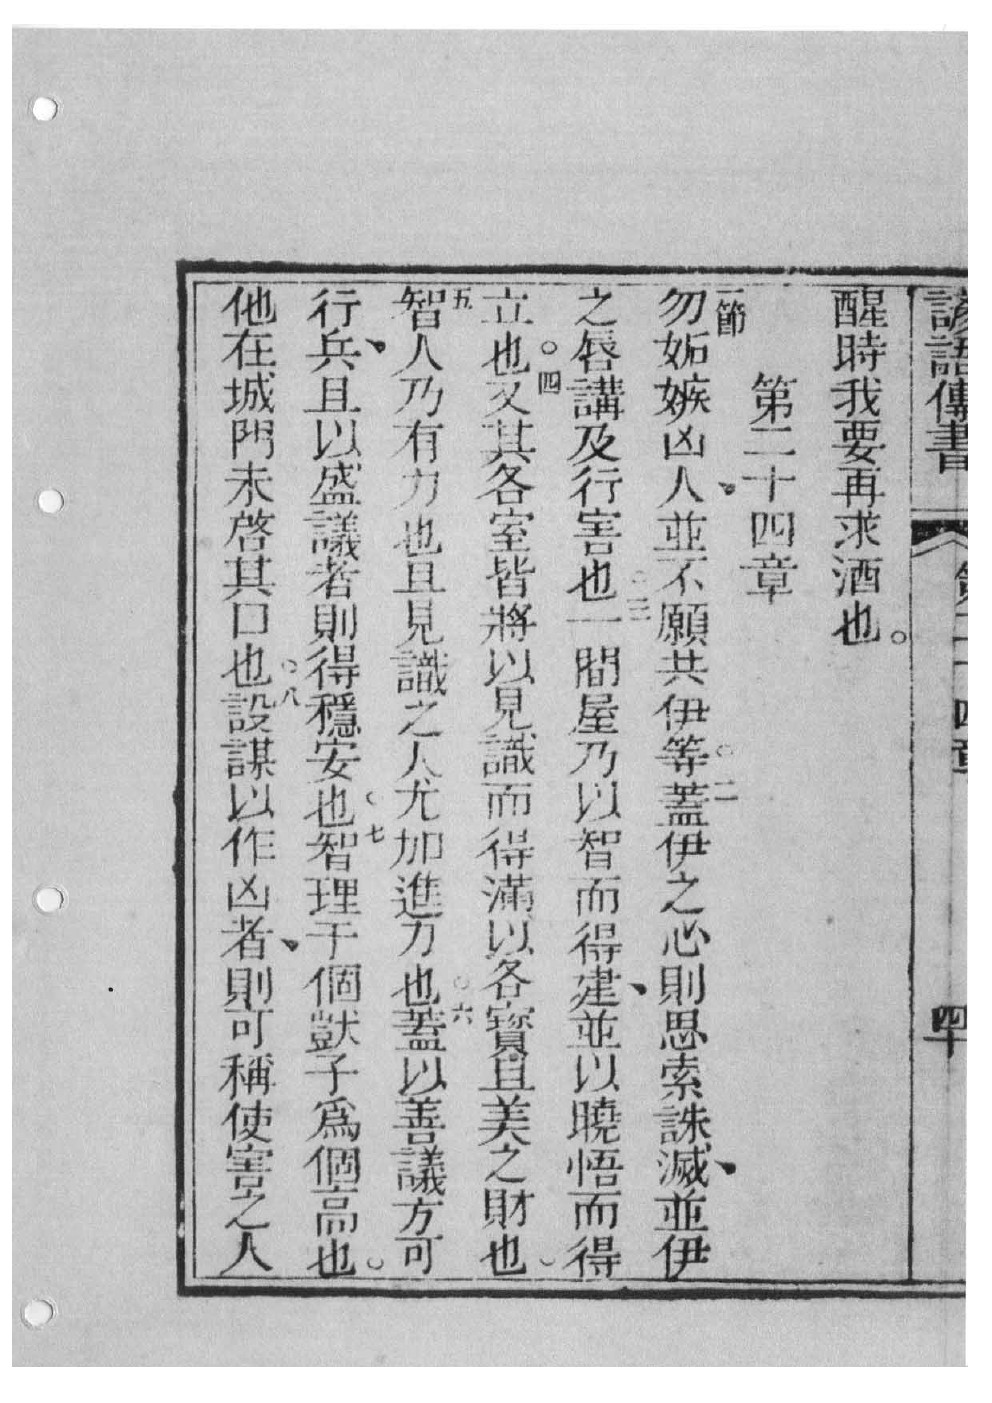 諺語傳書 第二十四章 四十
醒時我要再求酒也。
第二十四章
一節勿妬嫉凶人、並不願共伊等。二蓋伊之心則思索誅滅、並伊
之唇講及行害也。三一間屋乃以智而得建、並以曉悟而得
立也。四又其各室皆將以見識而得滿以各寶且美之財也。
五智人乃有力也且見識之人尤加進力也。六蓋以善議方可
行兵、且以盛議者則得穩安也。七智理于個獃子爲個高也。
他在城門未啓其口也。八設謀以作凶者、則可稱使害之人